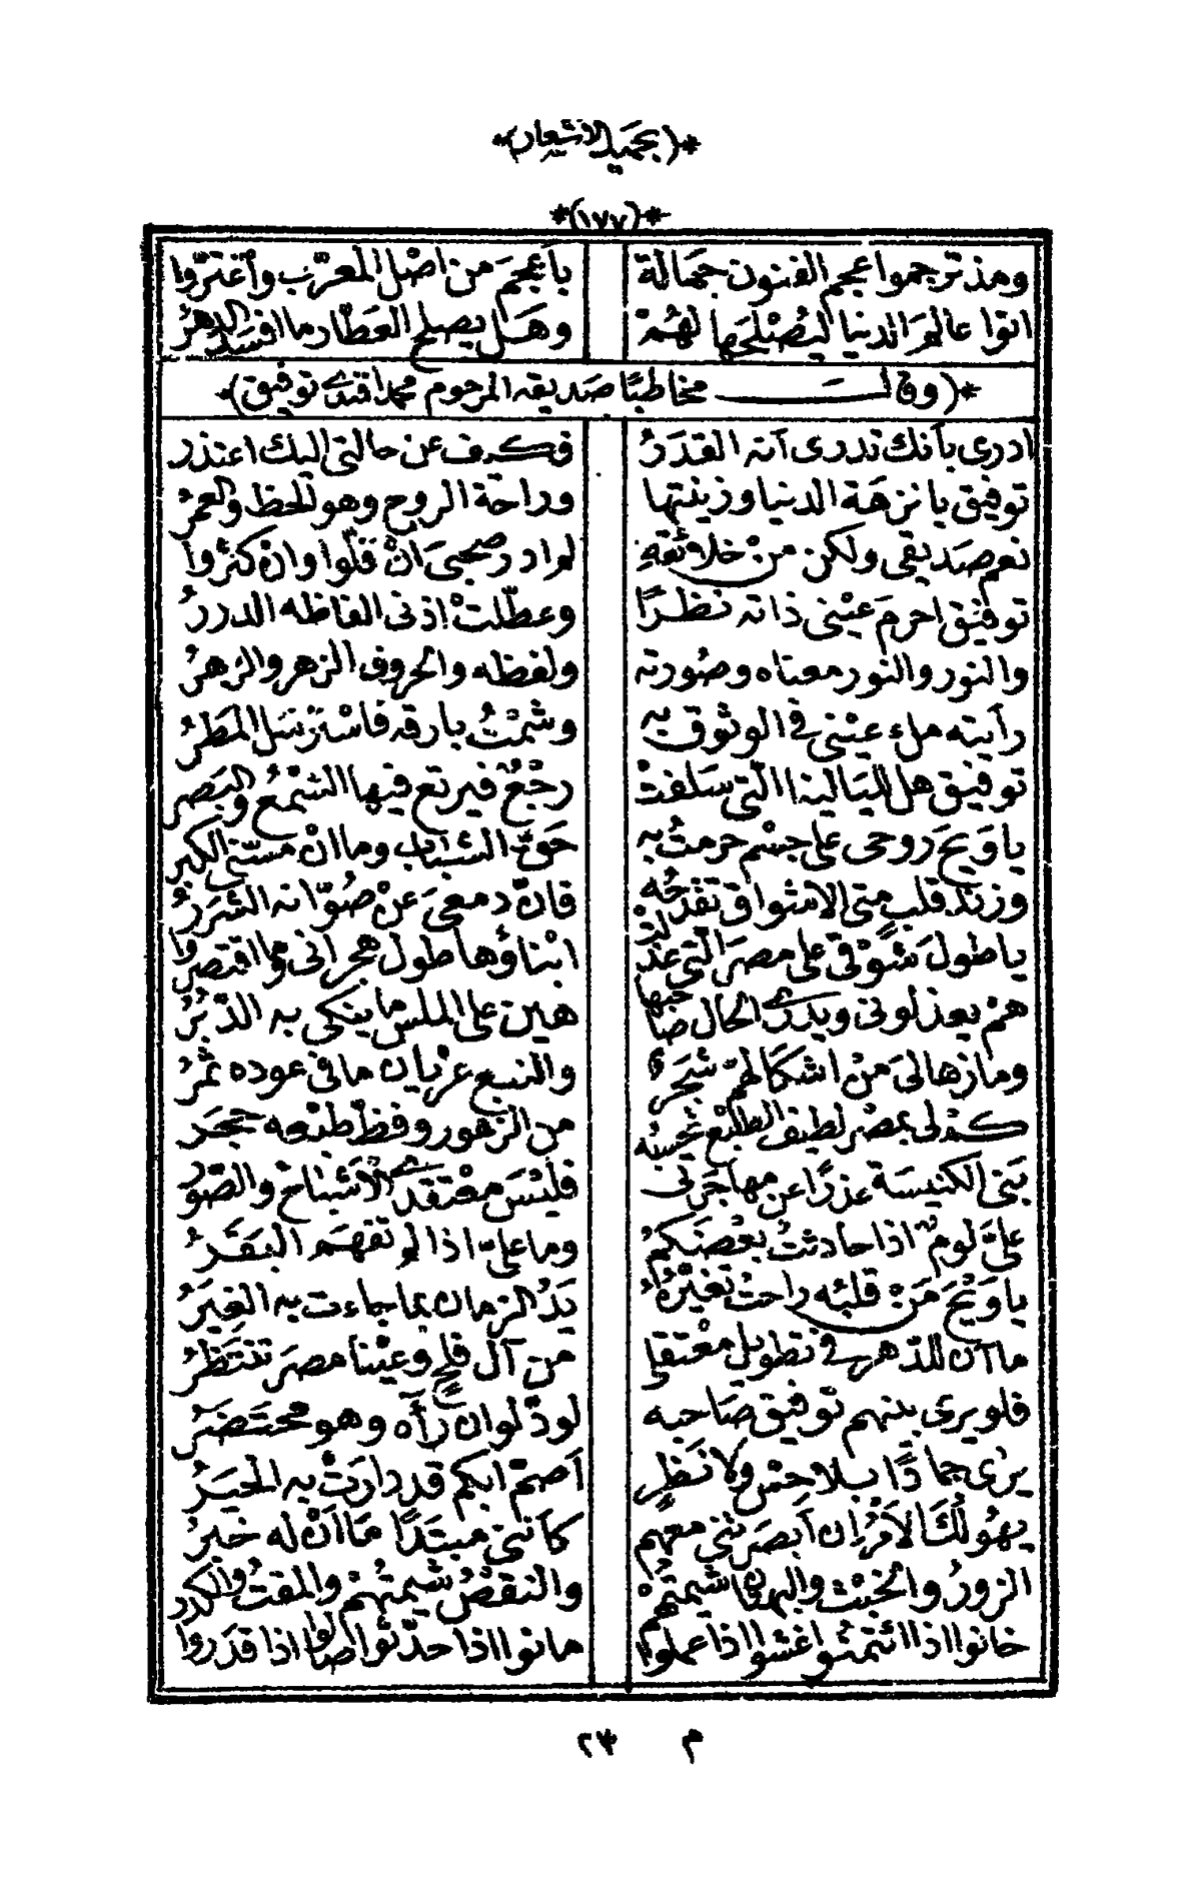 *(بحميد الاشعار)*
*(١٧٧)*
ومذ ترجموا عجم الفنون جهالة باعجم من اصل المعرّب واغترّوا
اتوا عالم الدنيا ليصلحها لهم وهل يصلح العطار ما افسد الدهر
*(وقال مخاطبًا صديقه المرحوم محمد افندى توفيق)*
ادرى بأنك تدرى أنه القدر فكيف عن حالتى اليك اعتذر
توفيق يا نزهة الدنيا وزينتها وراحة الروح وهو للحظ والعمر
نعم صديقى ولكن من خلائقه لم ادر صحبى ان قلّوا وان كثروا
توفيق احرم عينى ذاته نظرًا وعطّلت اذنى الفاظه الدرر
والنور والنور معناه وصورته ولفظه والحروف الزهر والزهر
رأيته ملء عينى فى الوثوق به وشمت بارقه فاستزسل المطر
توفيق هل لليالينا التى سلفت رجع فيرتع فيها السمع والبصر
يا ويح روحى على جسم حرمت به حقّ الشباب وما ان مسّنى الكبر
وزند قلب متى الاشواق تقدحه فانّ دمعى عن صوّانه الشرر
يا طول شوقى على مصر التى عذلت ابناؤها طول هجرانى وما اقتصروا
هم يعذلونى ويدرى الحال صاحبها هين على الملس ما ينكى به الدّبر
وما زها لى من اشكالهم شجر والنبع عريان ما فى عوده ثمر
كم لى بمصر لطيف الطبع تحسبه من الزهور وفظّ طبعه حجر
بنى الكنيسة عذرًا عن مهاجرتى فليس معتقدى الاشباح والصّور
علىّ لوم اذا حادثت بعضكم وما علىّ اذا لم تفهم البقر
يا ويح من قلبه راحت تغيّره يد الزمان بما جاءت به الغير
ما آن للدّهر فى تطويل معتقلى من آل فلح وعينا مصر تنتظر
فلو يرى بينهم توفيق صاحبه لودّ لو ان رآه وهو محتضر
يرى جمادًا بلا حسّ ولا نظر أصمّ ابكم قد دارت به الحير
يهولك الامر ان أبصرتنى معهم كأننى مبتدًا ما آن له خبر
الزور والخبث والبهتان شيمتهم والنقص شيمتهم والمقت والكدر
خانوا اذا ائتمنوا غشوا اذا عملوا مانوا اذا حدّثوا صالوا اذا قدروا
م ٢٣